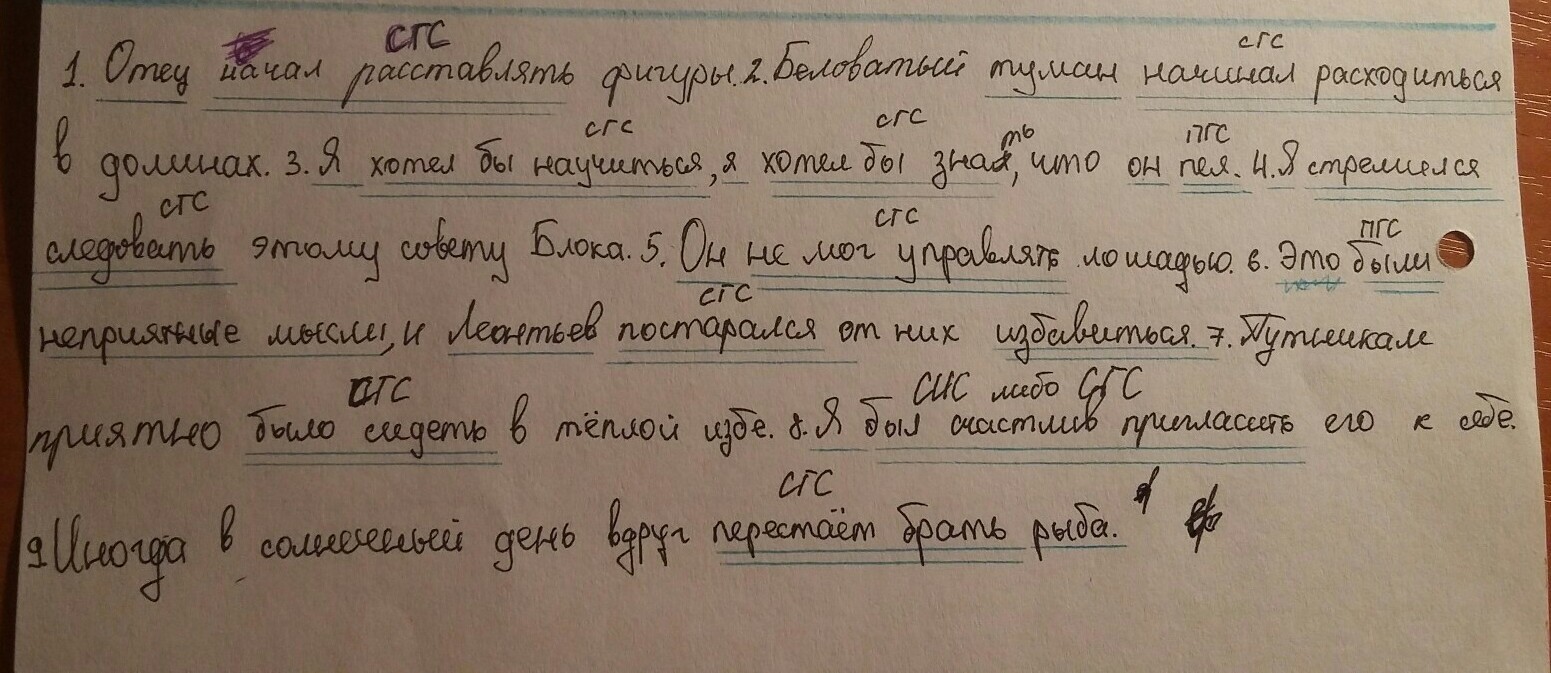 СГС СГС
1. Отец начал расставлять фигуры. 2. Беловатый туман начинал расходиться
СГС СГС ПГС
в долинах. 3. Я хотел бы научиться, я хотел бы знать, что он пел. 4. Я стремился
СГС СГС ПГС
следовать этому совету Блока. 5. Он не мог управлять лошадью. 6. Это были
СГС
неприятные мысли, и Леонтьев постарался от них избавиться. 7. Путникам
СГС СИС либо СГС
приятно было сидеть в тёплой избе. 8. Я был счастлив пригласить его к себе.
СГС
9 Иногда в солнечный день вдруг перестаёт брать рыба.